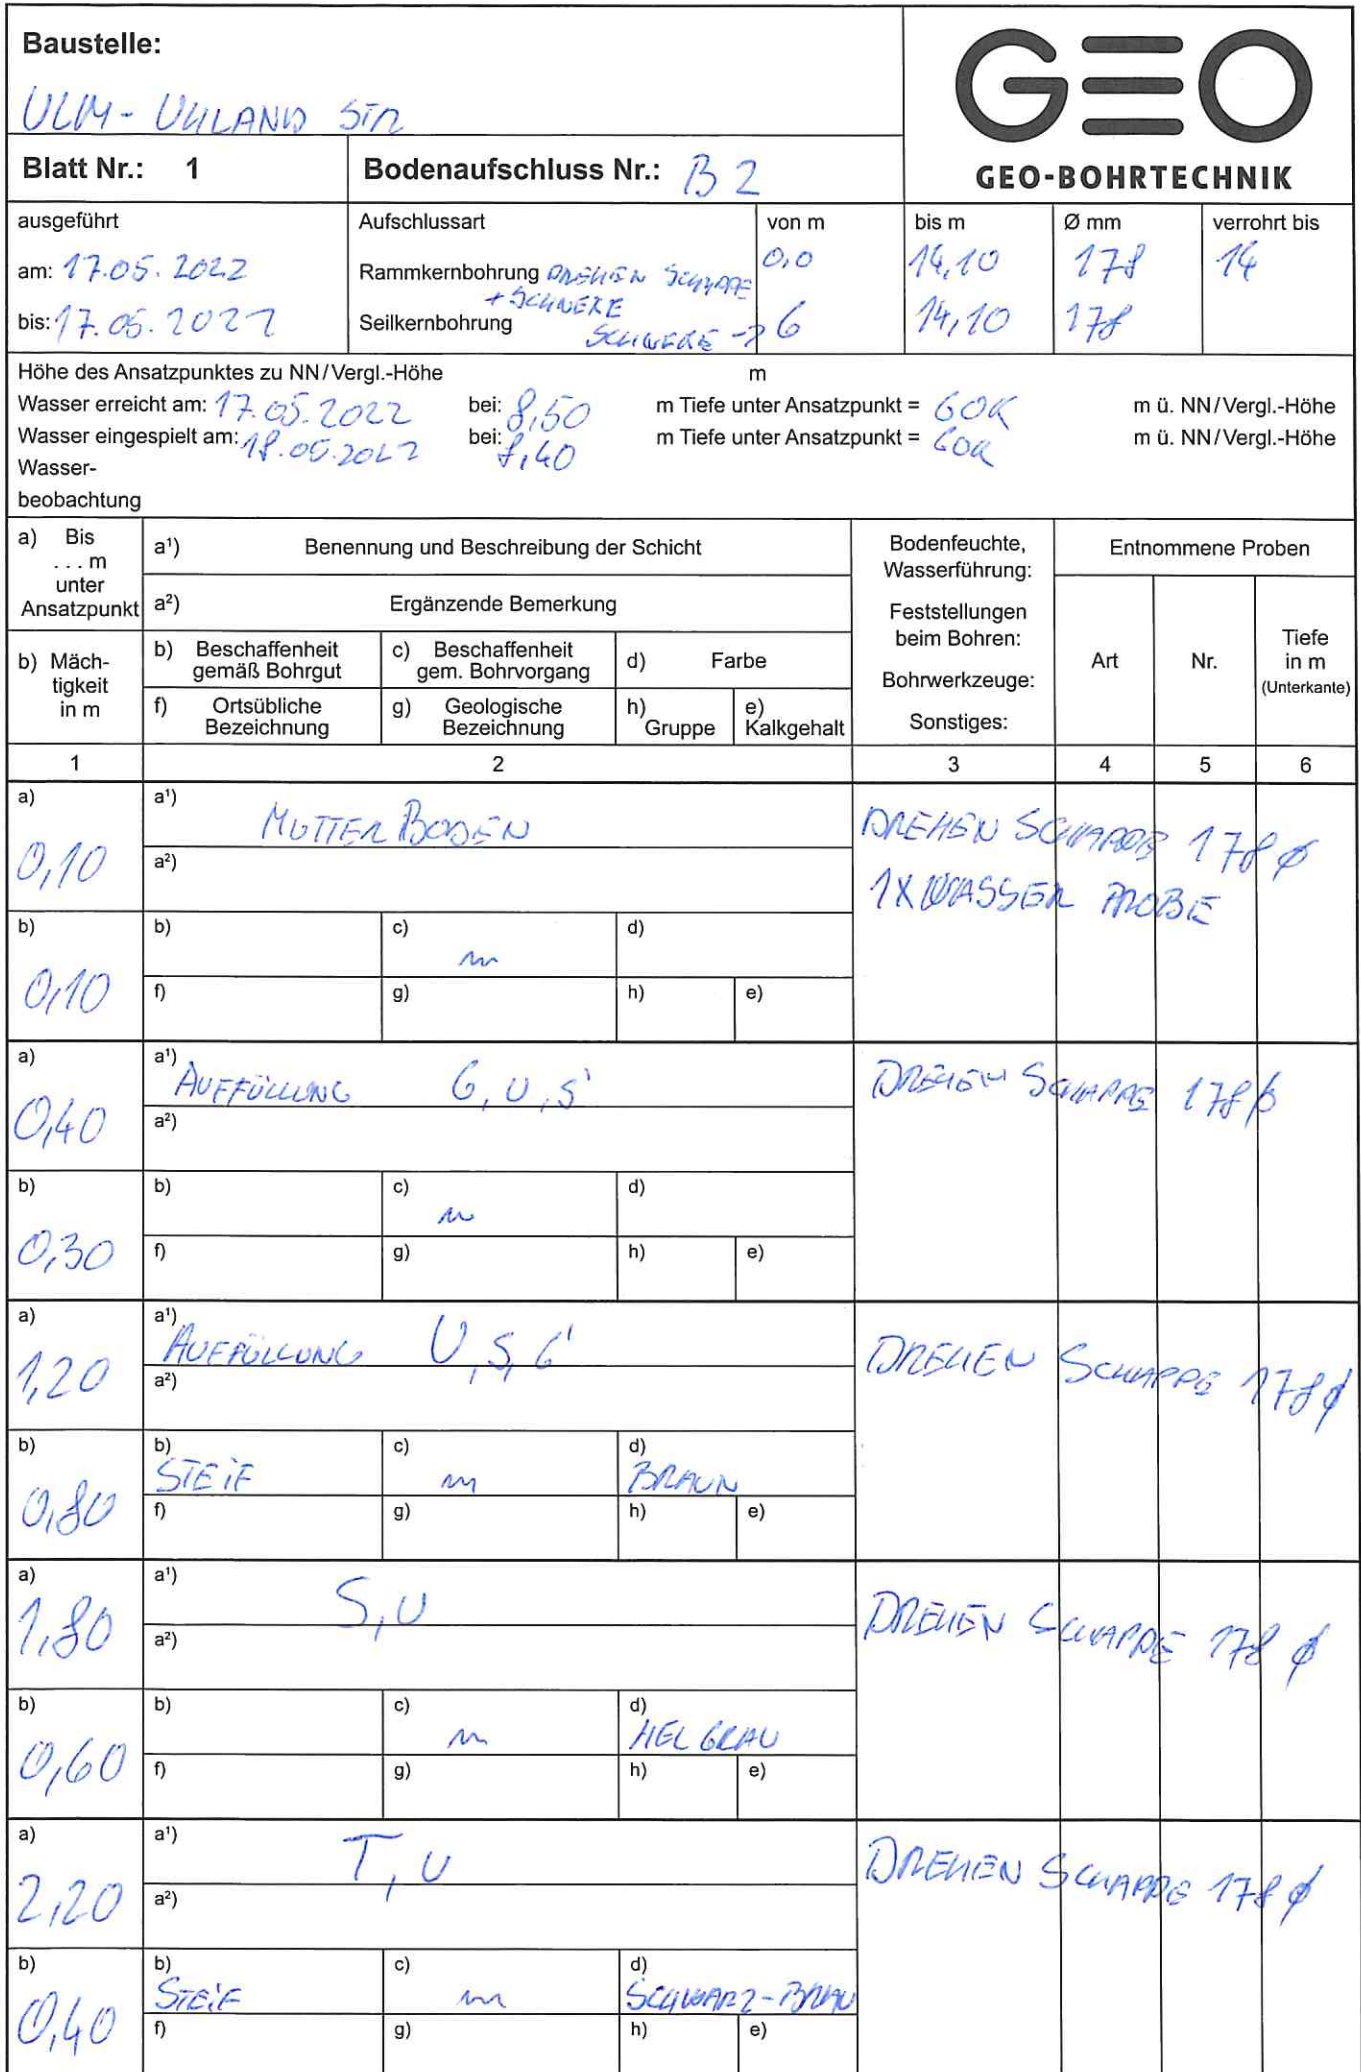 Baustelle:
ULM - UHLAND STR
GEO
GEO-BOHRTECHNIK
Blatt Nr.: 1
Bodenaufschluss Nr.: B 2
ausgeführt
am: 17.05.2022
bis: 17.05.2022
Aufschlussart
Rammkernbohrung DREHEN SCHAPPE
+ SCHNEKE
Seilkernbohrung SCHNEKE ->
von m
0,0
6
bis m
14,10
14,10
Ø mm
178
178
verrohrt bis
14
Höhe des Ansatzpunktes zu NN/Vergl.-Höhe m
Wasser erreicht am: 17.05.2022 bei: 8,50 m Tiefe unter Ansatzpunkt = GOK m ü. NN/Vergl.-Höhe
Wasser eingespielt am: 18.05.2022 bei: 8,40 m Tiefe unter Ansatzpunkt = GOK m ü. NN/Vergl.-Höhe
Wasser-
beobachtung
a) Bis
. . . m
unter
Ansatzpunkt
b) Mäch-
tigkeit
in m
a¹) Benennung und Beschreibung der Schicht
a²) Ergänzende Bemerkung
b) Beschaffenheit
gemäß Bohrgut
c) Beschaffenheit
gem. Bohrvorgang
d) Farbe
f) Ortsübliche
Bezeichnung
g) Geologische
Bezeichnung
h)
Gruppe
e)
Kalkgehalt
Bodenfeuchte,
Wasserführung:
Feststellungen
beim Bohren:
Bohrwerkzeuge:
Sonstiges:
Entnommene Proben
Art
Nr.
Tiefe
in m
(Unterkante)
1 2 3 4 5 6
a) 0,10
a¹) MUTTERBODEN
a²)
DREHEN SCHAPPE 178 Ø
1X WASSER PROBE
b) 0,10
b) c) m d)
f) g) h) e)
a) 0,40
a¹) AUFFÜLLUNG G, U, S'
a²)
DREHEN SCHAPPE 178 Ø
b) 0,30
b) c) m d)
f) g) h) e)
a) 1,20
a¹) AUFFÜLLUNG U, S, G'
a²)
DREHEN SCHAPPE 178 Ø
b) 0,80
b) STEIF c) m d) BRAUN
f) g) h) e)
a) 1,80
a¹) S, U
a²)
DREHEN SCHAPPE 178 Ø
b) 0,60
b) c) m d) HELGRAU
f) g) h) e)
a) 2,20
a¹) T, U
a²)
DREHEN SCHAPPE 178 Ø
b) 0,40
b) STEIF c) m d) SCHWARZ-BRAU
f) g) h) e)